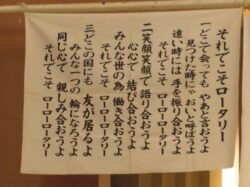 それでこそロータリー
一 どこで会っても やあと言おうよ
見つけた時にゃ おいと呼ぼうよ
遠い時には 手を振り合おうよ
それでこそ ローローロータリー
二 笑顔笑顔で 語り合おうよ
心心で 結び合おうよ
みんな世の為 働き合おうよ
それでこそ ローローロータリー
三 どこの国にも 友が居るよ
みんな一つの 輪になろうよ
同じ心で 親しみ合おうよ
それでこそ ローローロータリー